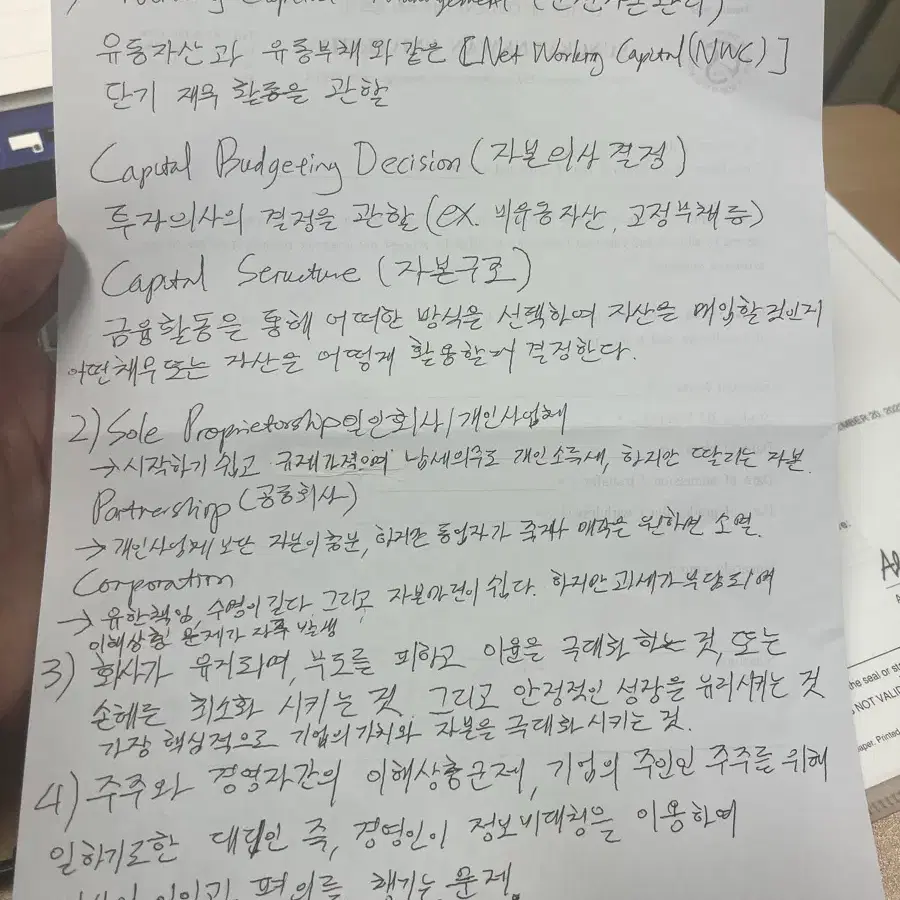 Working Capital Management (운전자본관리)
유동자산과 유동부채와 같은 [Net Working Capital(NWC)]
단기 재무 활동을 관할
Capital Budgeting Decision (자본의사결정)
투자의사의 결정을 관할 (ex. 비유동자산, 고정부채 등)
Capital Structure (자본구조)
금융활동을 통해 어떠한 방식을 선택하여 자산을 매입할것인지
어떤채무 또는 자산을 어떻게 활용할지 결정한다.
2) Sole Proprietorship 일인회사/개인사업체
→ 시작하기 쉽고 규제가적으며 납세의무로 개인소득세, 하지만 딸리는 자본.
Partnership (공동회사)
→ 개인사업체 보단 자본이충분, 하지만 동업자가 죽거나 매각을 원하면 소멸.
Corporation
→ 유한책임, 수명이 길다. 그리고 자본마련이 쉽다. 하지만 과세가 부담되며
이해상충 문제가 자주 발생
3) 회사가 유지되며, 부도를 피하고 이윤을 극대화 하는 것, 또는
손해를 최소화 시키는 것. 그리고 안정적인 성장을 유리시키는 것
가장 핵심적으로 기업의 가치와 자본을 극대화 시키는 것.
4) 주주와 경영자간의 이해상충문제, 기업의 주인인 주주를 위해
일하기로한 대리인 즉, 경영인이 정보비대칭을 이용하여
편의를 챙기는 문제.
EMBER 20, 202
the seal or st
NOT VALID
aper. Printed